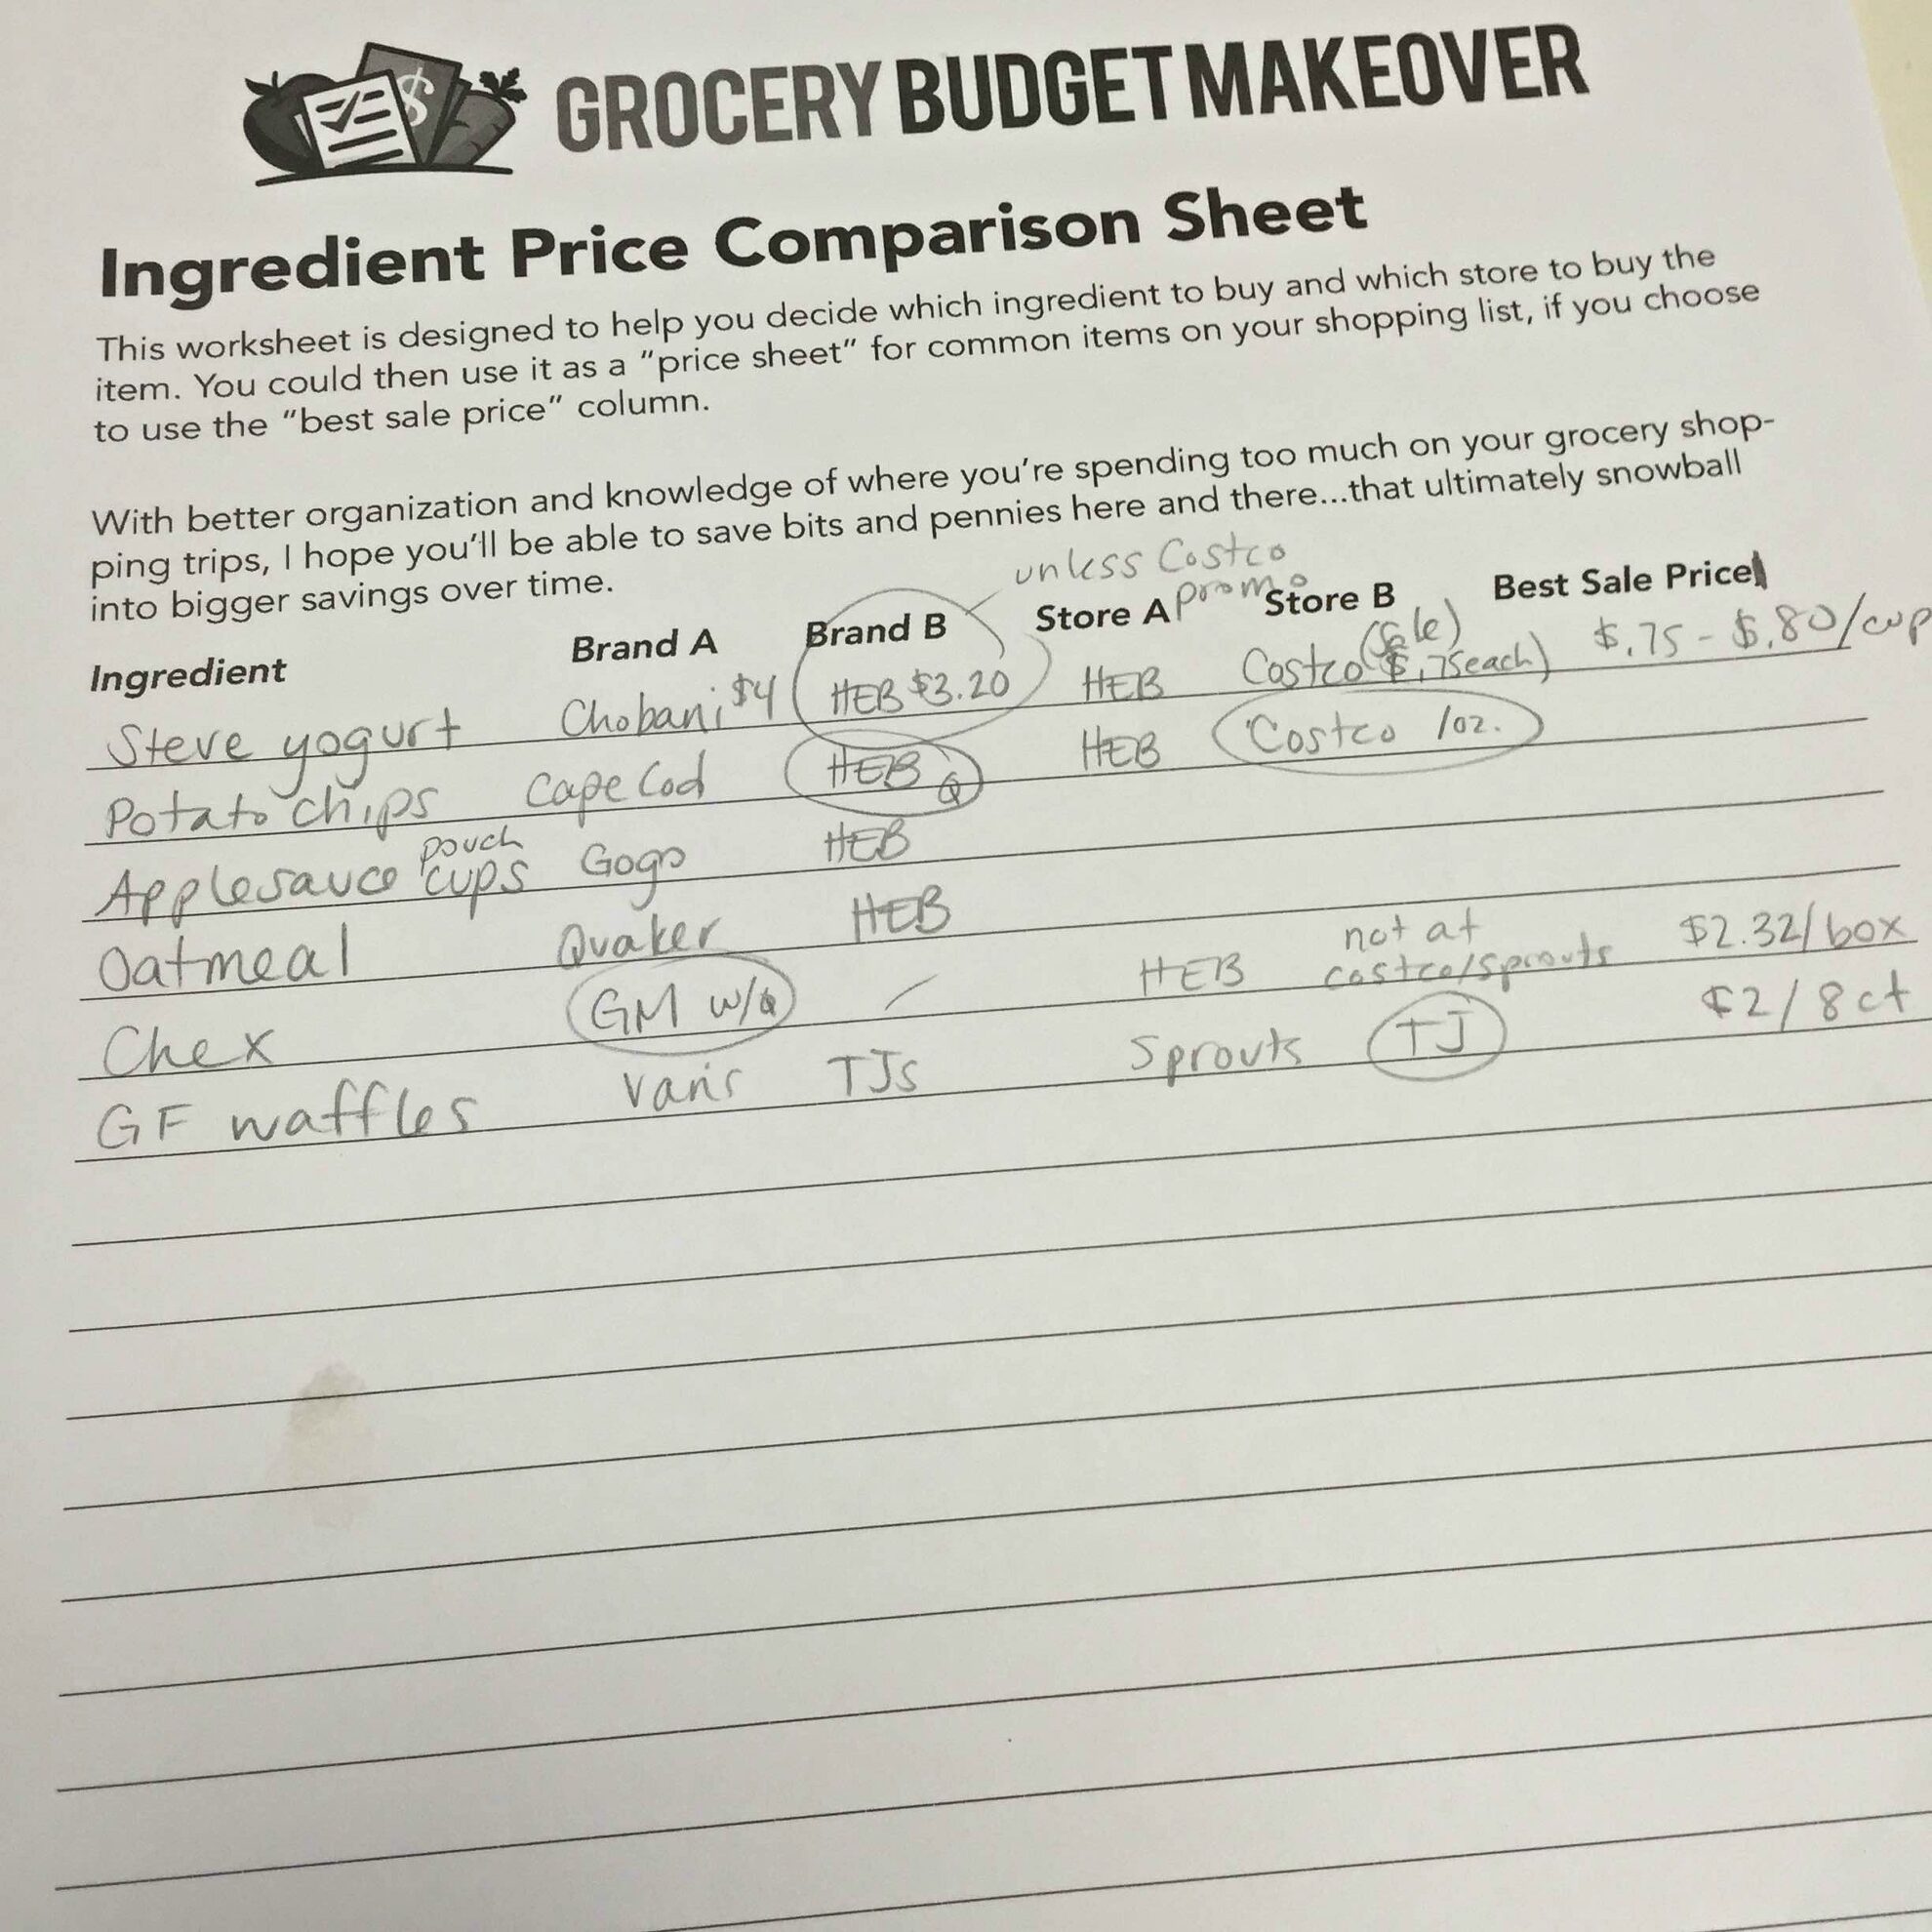 $
GROCERY BUDGET MAKEOVER
Ingredient Price Comparison Sheet
This worksheet is designed to help you decide which ingredient to buy and which store to buy the
item. You could then use it as a "price sheet" for common items on your shopping list, if you choose
to use the "best sale price" column.
With better organization and knowledge of where you're spending too much on your grocery shop-
ping trips, I hope you'll be able to save bits and pennies here and there...that ultimately snowball
into bigger savings over time.
unless Costco
promo
Ingredient Brand A Brand B Store A Store B Best Sale Price
(Sale)
Steve yogurt Chobani $4 HEB $3.20 HEB Costco $.75 each) $.75 - $.80/cup
Potato chips Cape Cod HEB Q HEB Costco /oz.
pouch
Applesauce cups Gogo HEB
Oatmeal Quaker HEB
not at
Chex GM w/Q HEB costco/sprouts $2.32/box
GF waffles Van's TJs Sprouts TJ $2/8ct